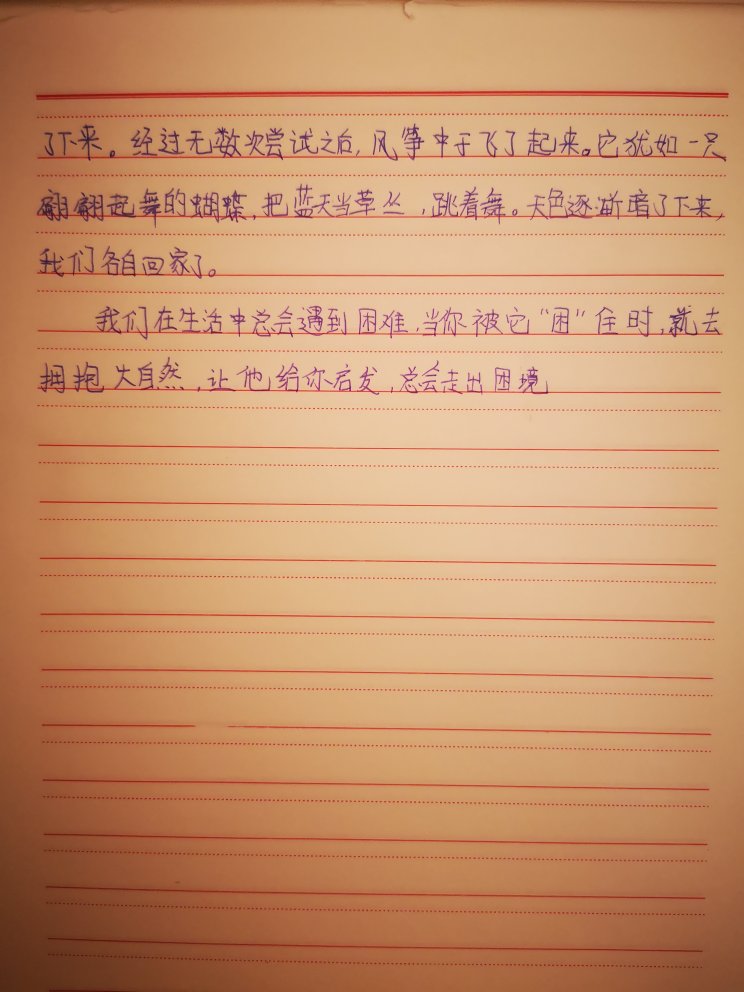 了下来。经过无数次尝试之后,风筝中于飞了起来。它犹如一只
翩翩起舞的蝴蝶,把蓝天当草丛,跳着舞。天色逐渐暗了下来,
我们各自回家了。
我们在生活中总会遇到困难,当你被它“困”住时,就去
拥抱大自然,让他给你启发,总会走出困境